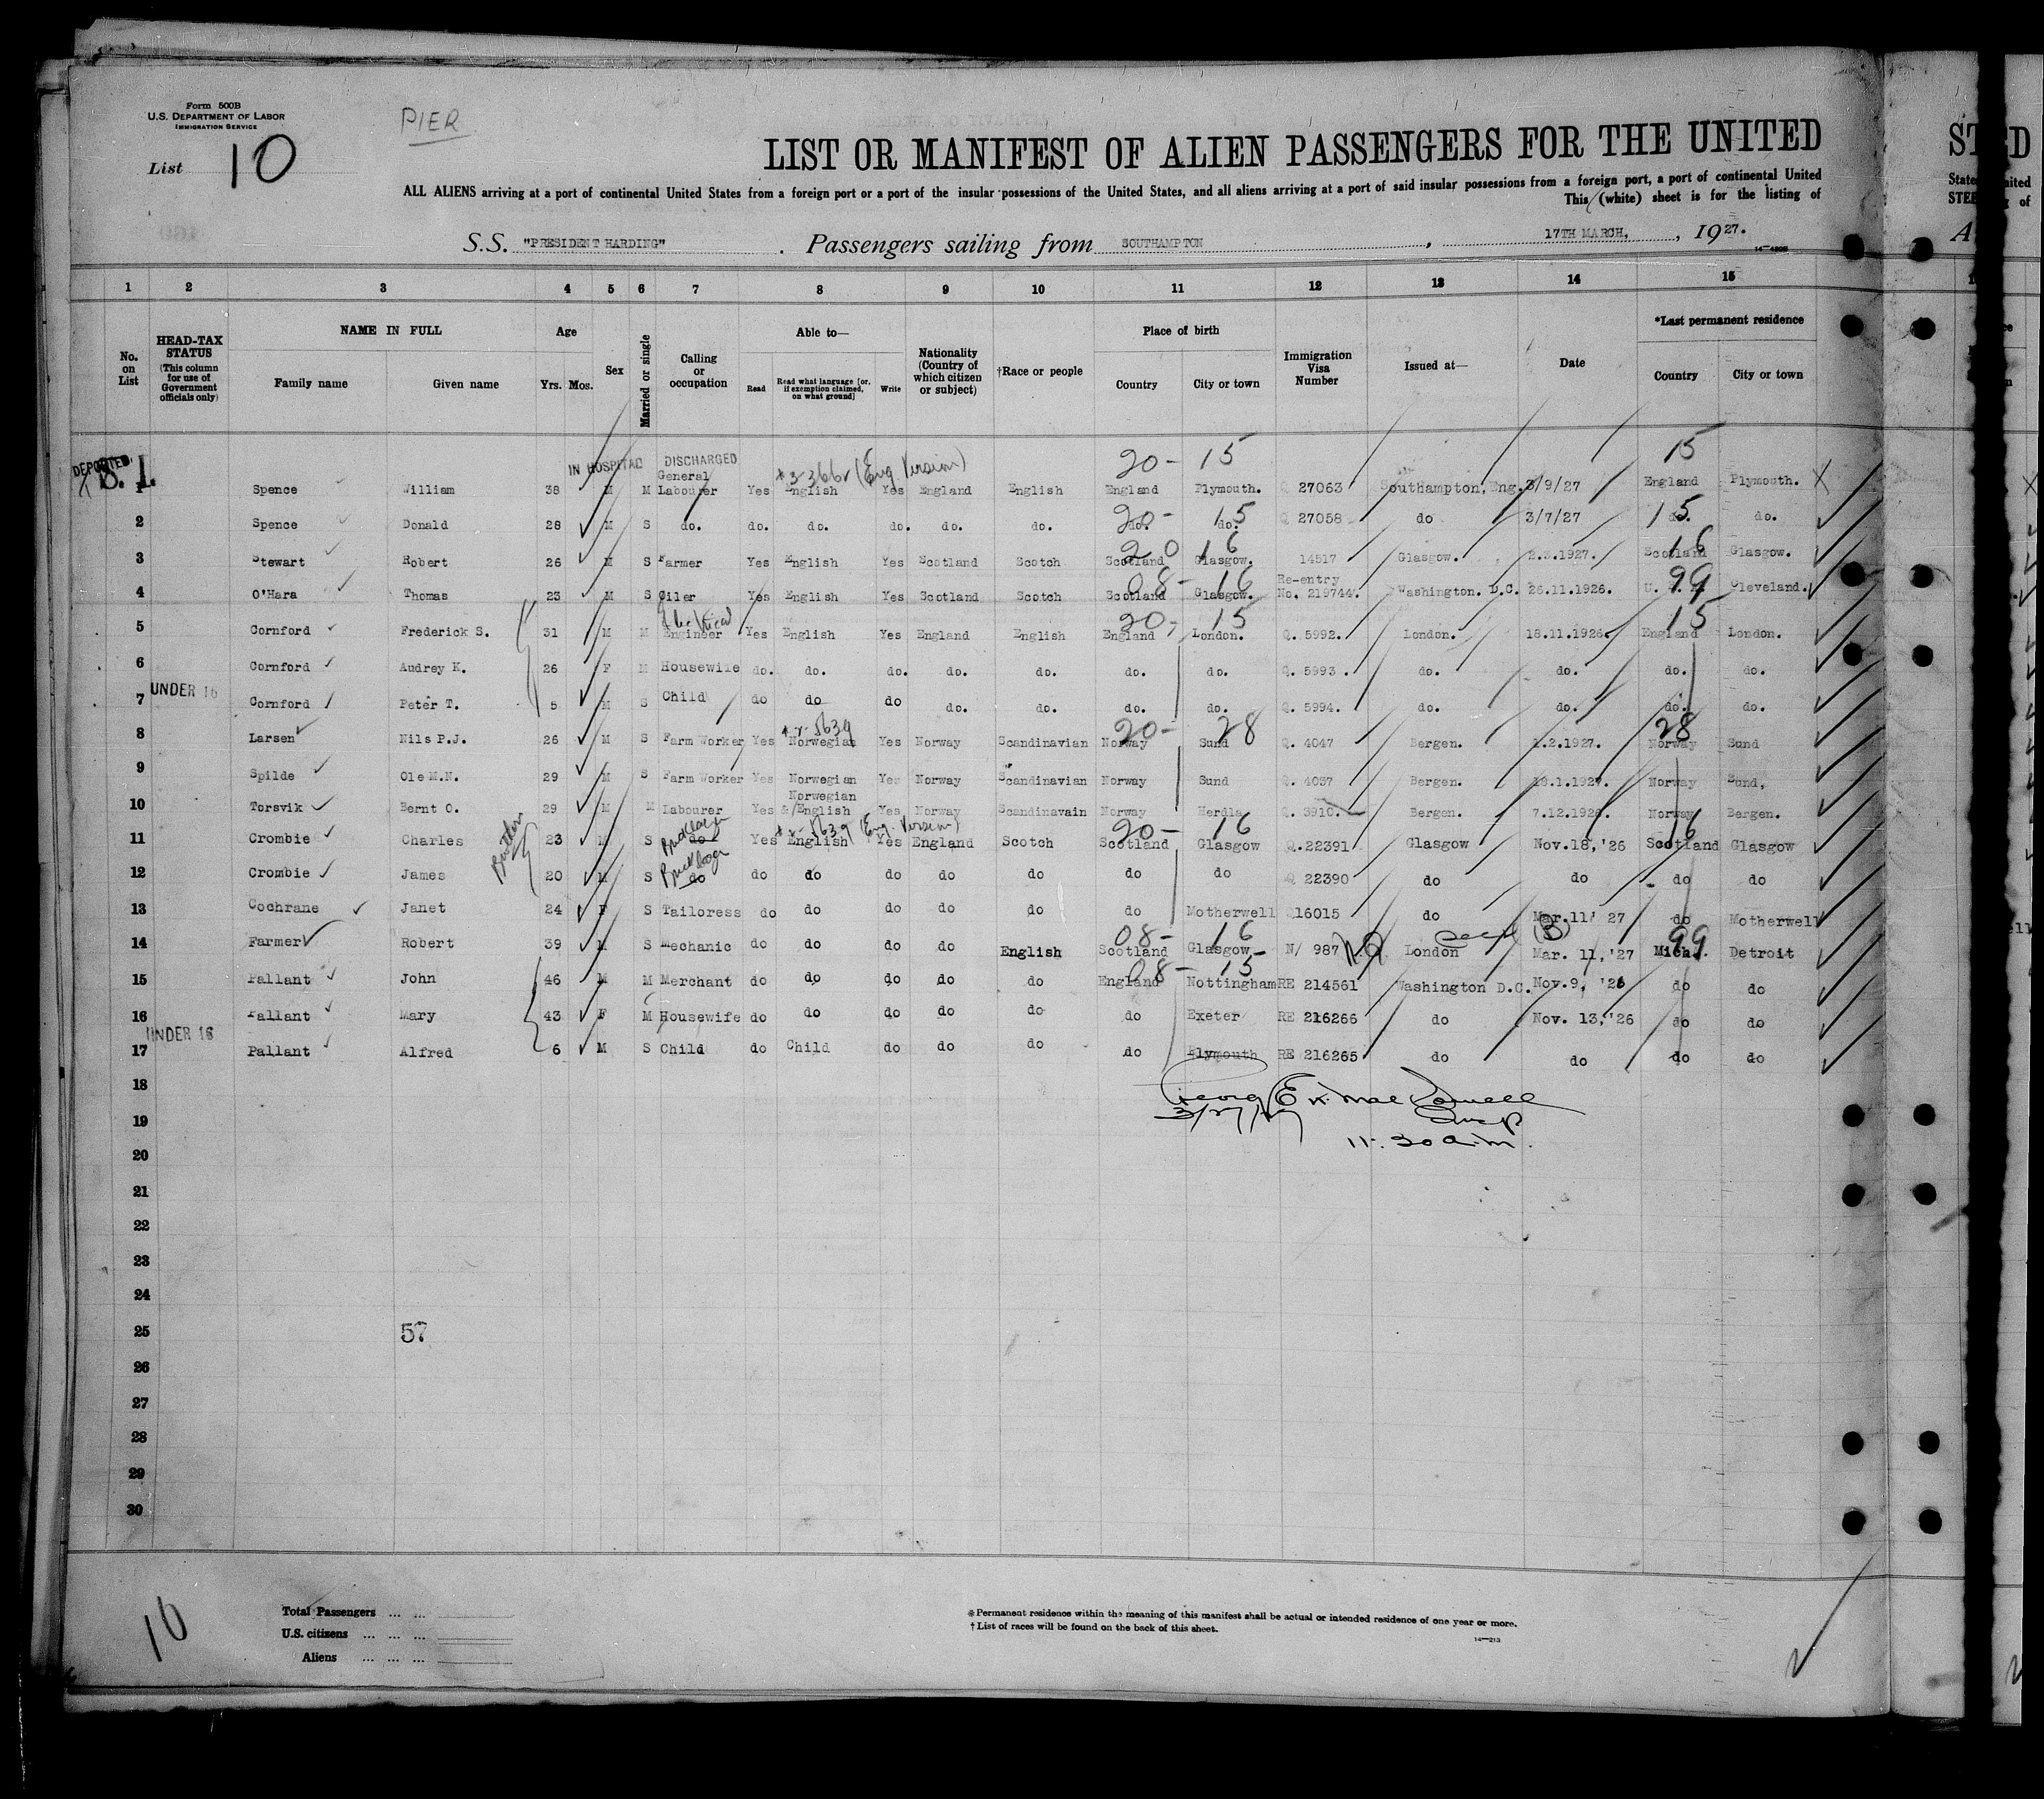 Form 500B
U.S. DEPARTMENT OF LABOR
IMMIGRATION SERVICE
PIER
List 10
LIST OR MANIFEST OF ALIEN PASSENGERS FOR THE UNITED
ALL ALIENS arriving at a port of continental United States from a foreign port or a port of the insular possessions of the United States, and all aliens arriving at a port of said insular possessions from a foreign port, a port of continental United
This (white) sheet is for the listing of
S.S. "PRESIDENT HARDING" . Passengers sailing from SOUTHAMPTON , 17TH MARCH, , 1927.
1 2 3 4 5 6 7 8 9 10 11 12 13 14 15
No. on List
HEAD-TAX STATUS (This column for use of Government officials only)
NAME IN FULL Family name Given name
Age Yrs. Mos.
Sex
Married or single
Calling or occupation
Able to— Read Read what language [or, if exemption claimed, on what ground] Write
Nationality (Country of which citizen or subject)
†Race or people
Place of birth Country City or town
Immigration Visa Number
Issued at—
Date
*Last permanent residence Country City or town
DEPORTED IN HOSPITAL DISCHARGED (Eng. Version) 20- 15 15
1 Spence William 38 M M General Labourer Yes English Yes England English England Plymouth. Q 27063 Southampton, Eng. 3/9/27 England Plymouth. X
2 Spence Donald 28 M S do. do. do. do. do. do. 20- do. 15 do. Q 27058 do 3/7/27 15 do. do.
3 Stewart Robert 26 M S Farmer Yes English Yes Scotland Scotch 20 Scotland 16 Glasgow. 14517 Glasgow. 2.3.1927. 16 Scotland Glasgow.
4 O'Hara Thomas 23 M S Oiler Yes English Yes Scotland Scotch 08- Scotland 16 Glasgow. Re-entry No. 219744. Washington. D.C. 26.11.1926. 99 U.S.A. Cleveland.
5 Cornford Frederick S. 31 M M Electrical Engineer Yes English Yes England English 20- England 15 London. Q. 5992. London. 18.11.1926. 15 England London.
6 Cornford Audrey K. 26 F M Housewife do. do. do. do. do. do. do. Q. 5993 . do. do. do. do.
UNDER 16
7 Cornford Peter T. 5 M S Child do do do do. do. do. do. Q. 5994. do. do. do. do.
8 Larsen Nils P.J. 26 M S Farm Worker Yes Norwegian Yes Norway Scandinavian 20- Norway 28 Sund Q. 4047 Bergen. 1.2.1927. 28 Norway Sund
9 Spilde Ole M.N. 29 M S Farm Worker Yes Norwegian Yes Norway Scandinavian Norway Sund Q. 4037 Bergen. 18.1.1927. Norway Sund,
10 Torsvik Bernt O. 29 M M Labourer Yes Norwegian &/English Yes Norway Scandinavain Norway Herdla Q. 3910. Bergen. 7.12.1926. Norway Bergen.
Brother (Eng. Version)
11 Crombie Charles 23 M S Bricklayer do Yes English Yes England Scotch 20- Scotland 16 Glasgow Q.22391 Glasgow Nov.18,'26 16 Scotland Glasgow
12 Crombie James 20 M S Bricklayer do do do do do do do do Q 22390 do do do do
13 Cochrane Janet 24 F S Tailoress do do do do do do Motherwell Q16015 do Mar.11/ 27 do Motherwell
14 Farmer Robert 39 M S Mechanic do do do do English 08- Scotland 16 Glasgow N/ 987 London (B) Mar. 11,'27 99 Mich. Detroit
15 Pallant John 46 M M Merchant do do do do do 08- England 15 Nottingham RE 214561 Washington D.C. Nov.9, '26 do do
16 Pallant Mary 43 F M Housewife do do do do do do Exeter RE 216266 do Nov. 13,'26 do do
UNDER 16
17 Pallant Alfred 6 M S Child do Child do do do do Plymouth RE 216265 do do do do
18
3/27/27 Insp
19
11.30 a.m.
20
21
22
23
24
25 57
26
27
28
29
30
10
Total Passengers ... ...
U.S. citizens ... ... ...
Aliens ... ... ...
*Permanent residence within the meaning of this manifest shall be actual or intended residence of one year or more.
†List of races will be found on the back of this sheet.
14—213